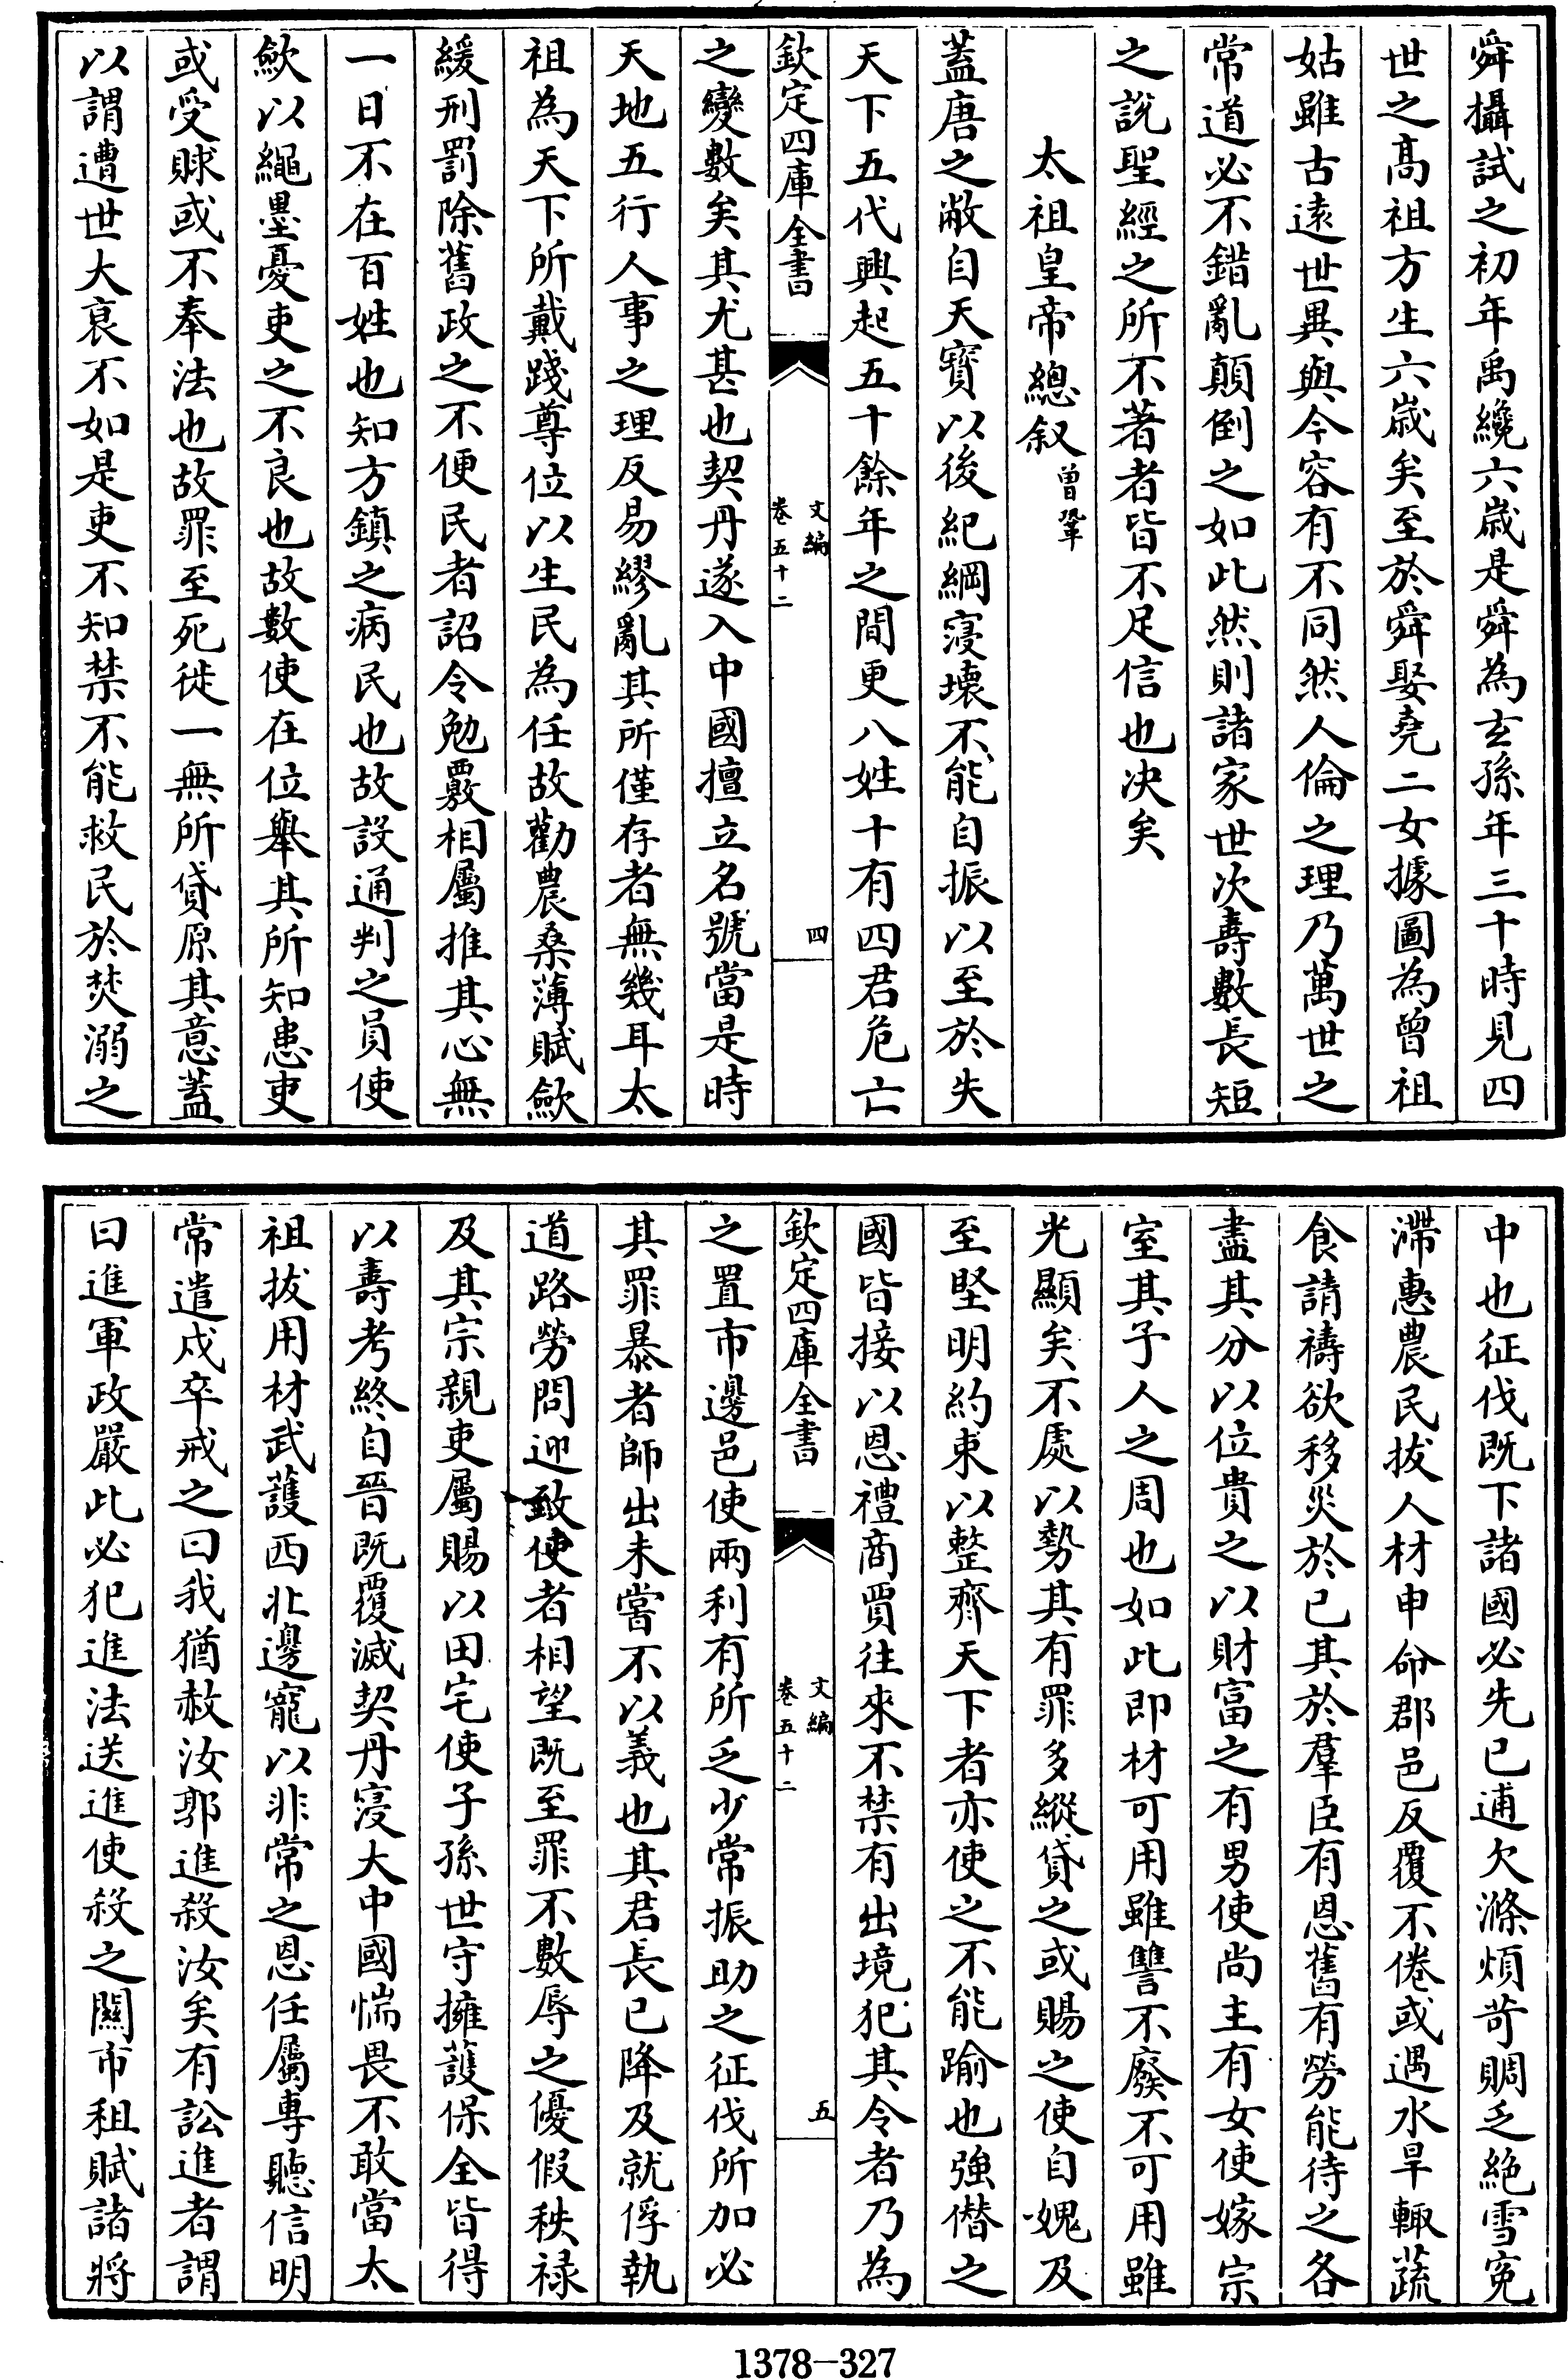 舜攝試之初年禹纔六嵗是舜為玄孫年三十時見四
世之髙祖方生六嵗矣至於舜娶堯二女據圖為曾祖
姑雖古逺世異與今容有不同然人倫之理乃萬世之
常道必不錯亂顛倒之如此然則諸家世次夀數長短
之說聖經之所不著者皆不足信也决矣
太祖皇帝總叙曾鞏
蓋唐之敝自天寳以後紀綱寖壊不能自振以至於失
天下五代興起五十餘年之間更八姓十有四君危亡
欽定四庫全書
文編
卷五十二
四
之變數矣其尤甚也契丹遂入中國擅立名號當是時
天地五行人事之理反易繆亂其所僅存者無幾耳太
祖為天下所戴踐尊位以生民為任故勸農桑薄賦歛
緩刑罰除舊政之不便民者詔令勉覈相屬推其心無
一日不在百姓也知方鎮之病民也故設通判之員使
歛以繩墨憂吏之不良也故數使在位舉其所知患吏
或受賕或不奉法也故罪至死徙一無所貸原其意蓋
以謂遭世大衰不如是吏不知禁不能救民於焚溺之
中也征伐既下諸國必先已逋欠滌煩苛賙乏絶雪寃
滯惠農民拔人材申命郡邑反覆不倦或遇水旱輙蔬
食請禱欲移災於已其於羣臣有恩舊有勞能待之各
盡其分以位貴之以財富之有男使尚主有女使嫁宗
室其子人之周也如此即材可用雖讐不廢不可用雖
光顯矣不處以勢其有罪多縱貸之或賜之使自媿及
至堅明約束以整齊天下者亦使之不能踰也強僣之
國皆接以恩禮商賈往來不禁有出境犯其令者乃為
欽定四庫全書
文編
卷五十二
五
之置市邊邑使兩利有所乏少常振助之征伐所加必
其罪暴者師出未嘗不以義也其君長已降及就俘執
道路勞問迎致使者相望既至罪不數辱之優假秩禄
及其宗親吏屬賜以田宅使子孫世守擁䕶保全皆得
以夀考終自晉既覆滅契丹寖大中國惴畏不敢當太
祖拔用材武䕶西北邊寵以非常之恩任屬專聽信明
常遣戍卒戒之曰我猶赦汝郭進殺汝矣有訟進者謂
曰進軍政嚴此必犯進法送進使殺之關市租賦諸將
1378—327